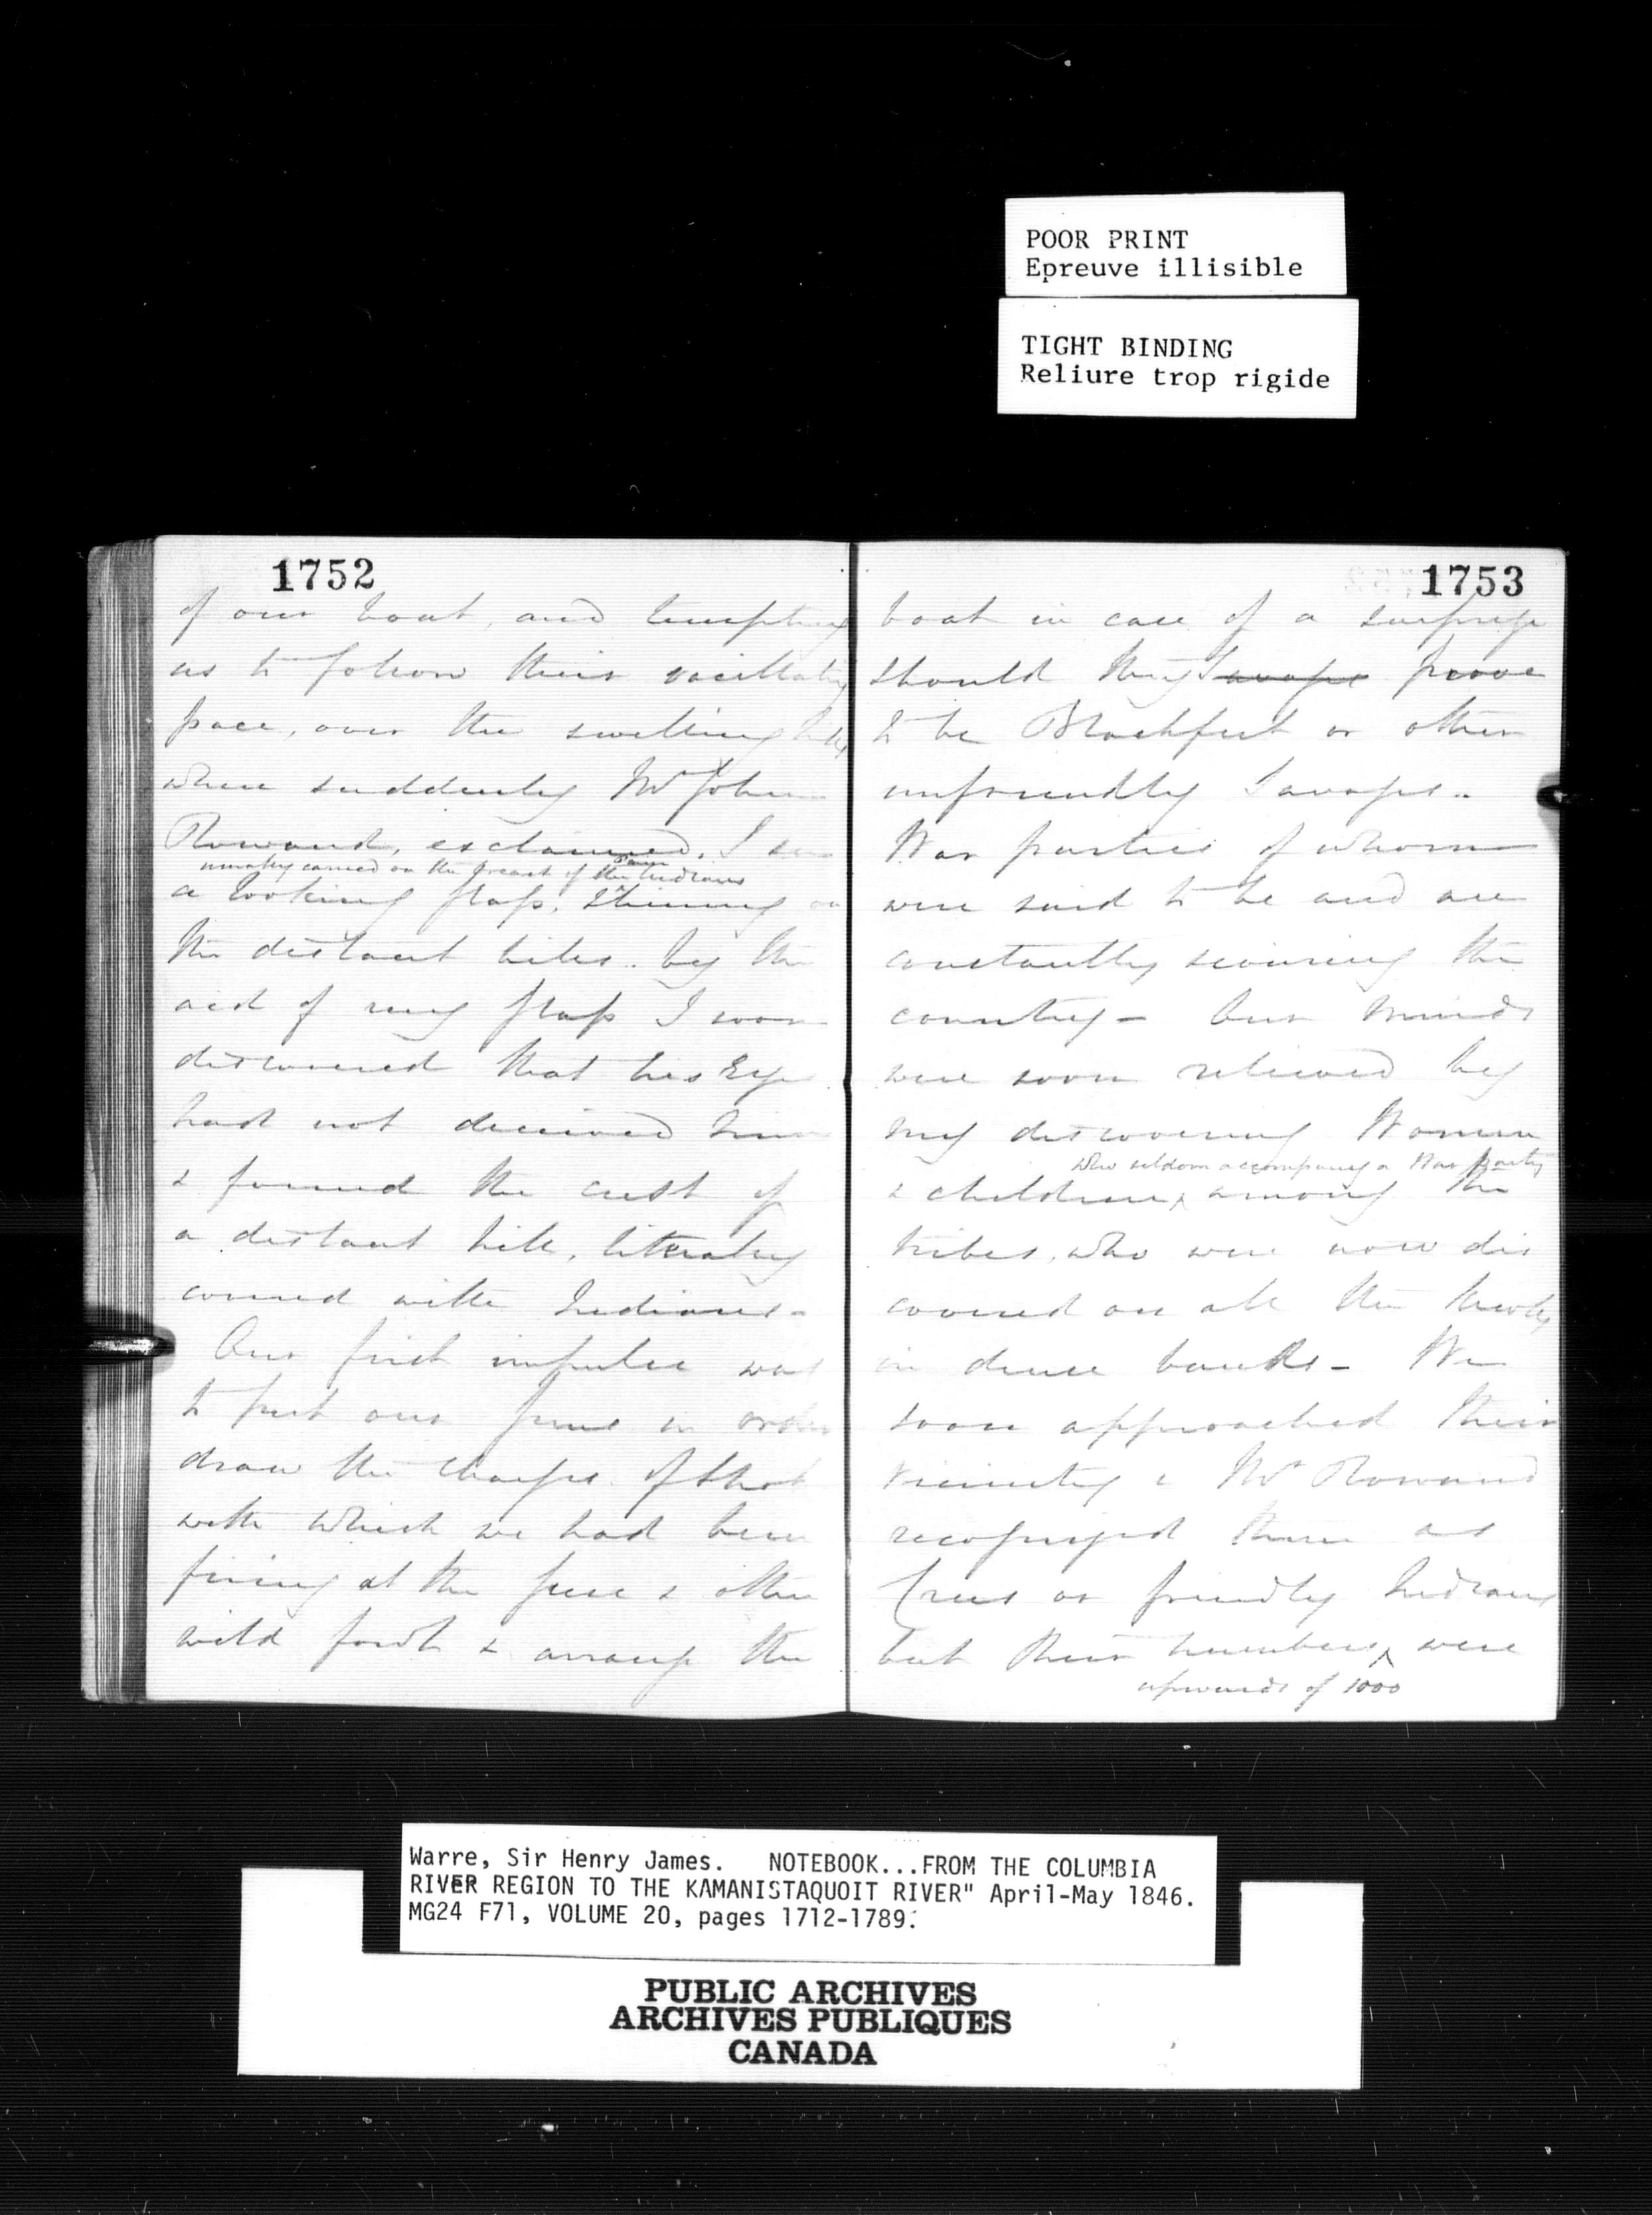 POOR PRINT
Epreuve illisible
TIGHT BINDING
Reliure trop rigide
1752
of our boat, and tempting
us to follow their vacillating
pace, over the swelling hills
when suddenly Mr John
Rowand, exclaimed, I see
usually carried on the breast of the Plain Indians
a looking glass, shining on
the distant hills.. by the
aid of my glass I soon
discovered that his Eyes
had not deceived him
& found the crest of
a distant hill, literally
covered with Indians-
Our first impulse was
to put our guns in order
draw the charges of shot
with which we had been
firing at the geese & other
wild fowl & arrange the
1753
boat in case of a surprise
should they Savages prove
to be Blackfeet or other
unfriendly Savages..
War parties of whom
were said to be and are
constantly scouring the
country- Our minds
were soon relieved by
my discovering Women
who seldom accompany a War Party
& children, among the
tribes, who were now dis
covered on all the
in dense bands- We
soon approached their
vicinity & Mr Rowand
recognized them as
Crees or friendly Indians
but their numbers were
upwards of 1000
Warre, Sir Henry James. NOTEBOOK...FROM THE COLUMBIA
RIVER REGION TO THE KAMANISTAQUOIT RIVER" April-May 1846.
MG24 F71, VOLUME 20, pages 1712-1789.
PUBLIC ARCHIVES
ARCHIVES PUBLIQUES
CANADA